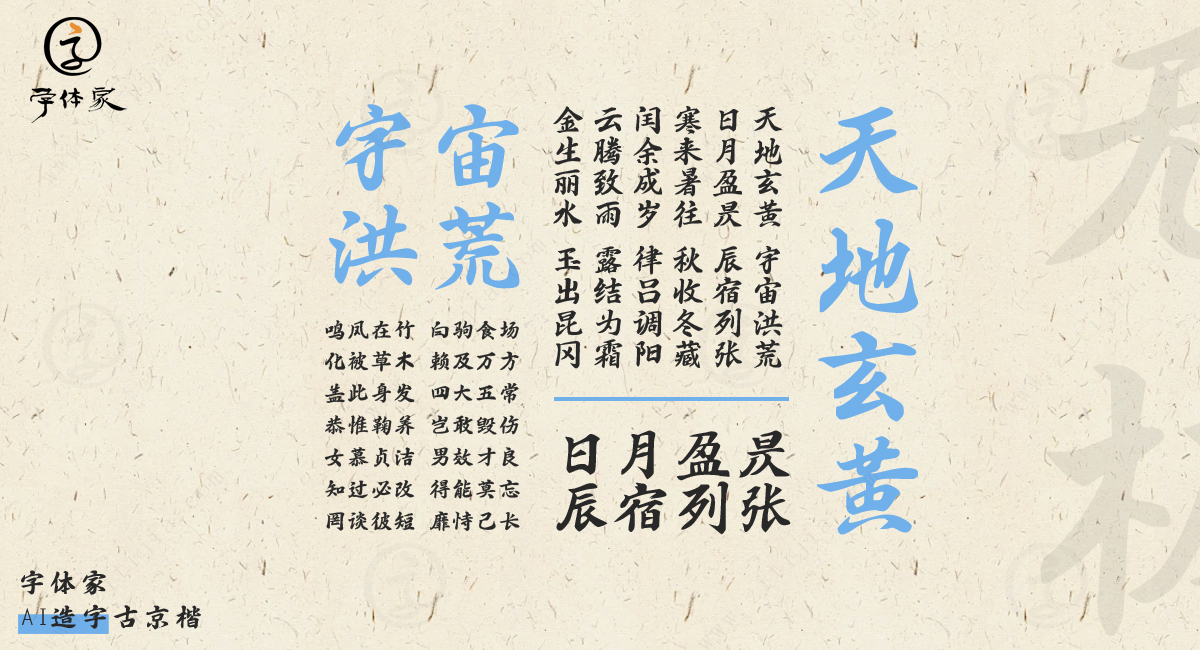 字体家
天地玄黄
天地玄黄 宇宙洪荒
日月盈昃 辰宿列张
寒来暑往 秋收冬藏
闰余成岁 律吕调阳
云腾致雨 露结为霜
金生丽水 玉出昆冈
日月盈昃
辰宿列张
宇宙
洪荒
鸣凤在竹 白驹食场
化被草木 赖及万方
盖此身发 四大五常
恭惟鞠养 岂敢毁伤
女慕贞洁 男效才良
知过必改 得能莫忘
罔谈彼短 靡恃己长
字体家
AI造字古京楷